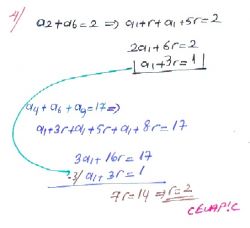 4/ a2+a6=2 ⇒ a1+r+a1+5r=2
2a1+6r=2
a1+3r=1
a4+a6+a9=17⇒
a1+3r+a1+5r+a1+8r=17
3a1+16r=17
-3/ a1+3r=1
7r=14 ⇒ r=2
CEVAP:C